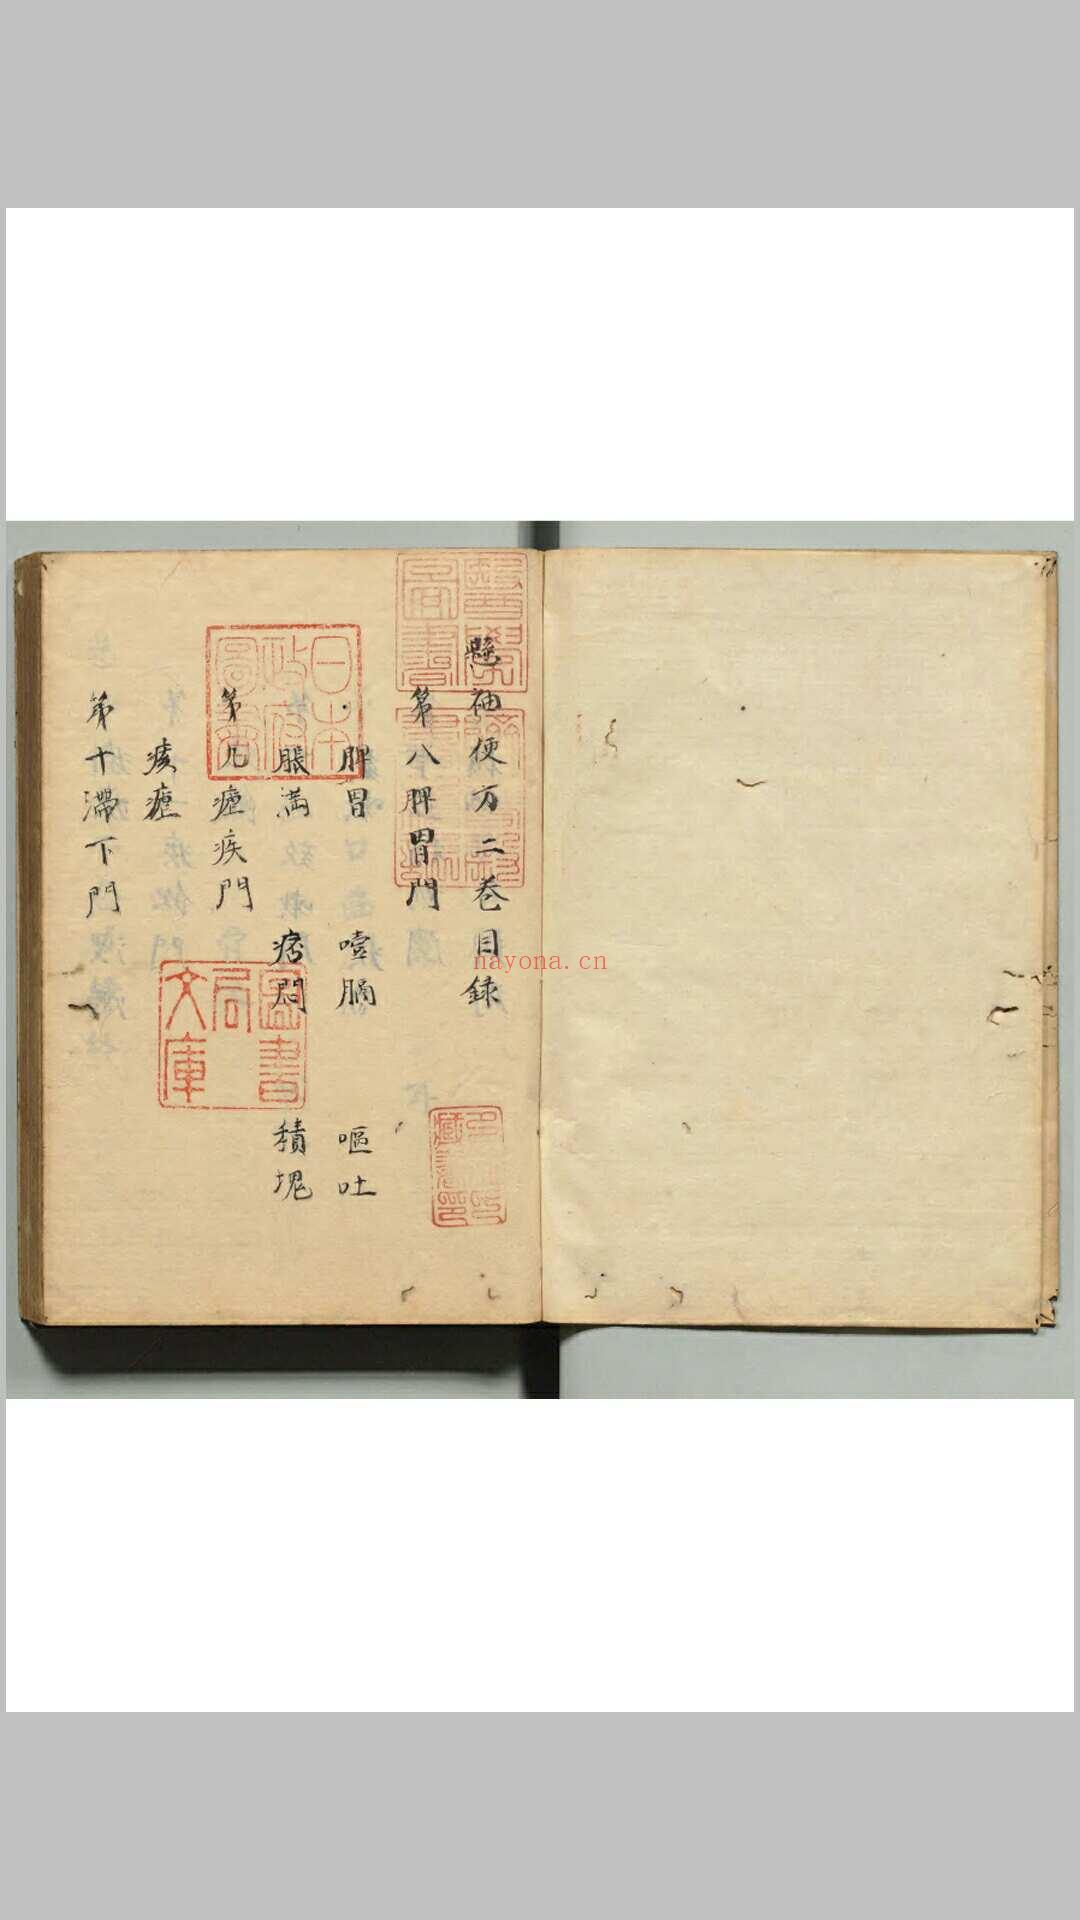 懸袖便方二巻目録
第八脾胃門
脾胃 噎膈 嘔吐
脹満 痞悶 積塊
第九瘧疾門
痎瘧
第十滯下門
醫學圖書
日本政府圖書
圖書局文庫
nayona.cn